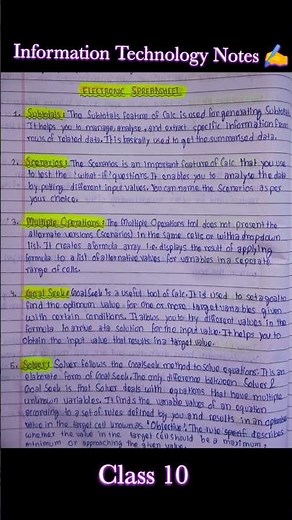 Information Technology Notes ✍️
ELECTRONIC SPREADSHEET
1. Subtotals: The Subtotals feature of Calc is used for generating Subtotals.
It helps you to manage, analyse, and extract specific information from
rows of related data. It is basically used to get the summarised data.
2. Scenarios: The Scenarios is an important feature of Calc that you use
to test the "what-if" questions. It enables you to analyse the data
by putting different input values. You can name the Scenarios as per
your choice.
3. Multiple Operations: The Multiple Operations tool does not present the
alternate versions (scenarios) in the same cells or with a dropdown
list. It creates a formula array i.e. displays the result of applying
formula to a list of alternative values for variables in a seperate
range of cells.
4. Goal Seek: Goal Seek is a useful tool of Calc. It is used to set a goal to
find the optimum value for one or more target variables given
with certain conditions. It allows you to try different values in the
formula to arrive at a solution for the input value. It helps you to
obtain the input value that results in a target value.
5. Solver: Solver follows the Goal Seek method to solve equations. It is an
elaborate form of Goal Seek. The only difference between Solver &
Goal Seek is that Solver deals with equations that have multiple
unknown variables. It finds the variable values of an equation
according to a set of rules defined by you and results in an optimum
value in the target cell known as "Objective". The rule describes
whether the value in the target cell should be a maximum,
minimum or approaching the given value.
Class 10